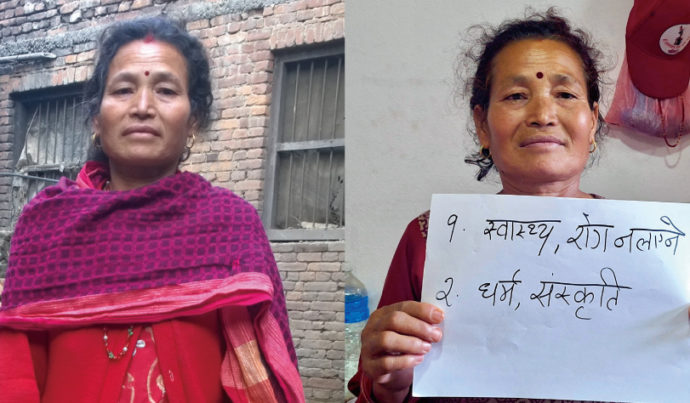 १. स्वास्थ्य, रोग नलाग्ने
२. धर्म, संस्कृति